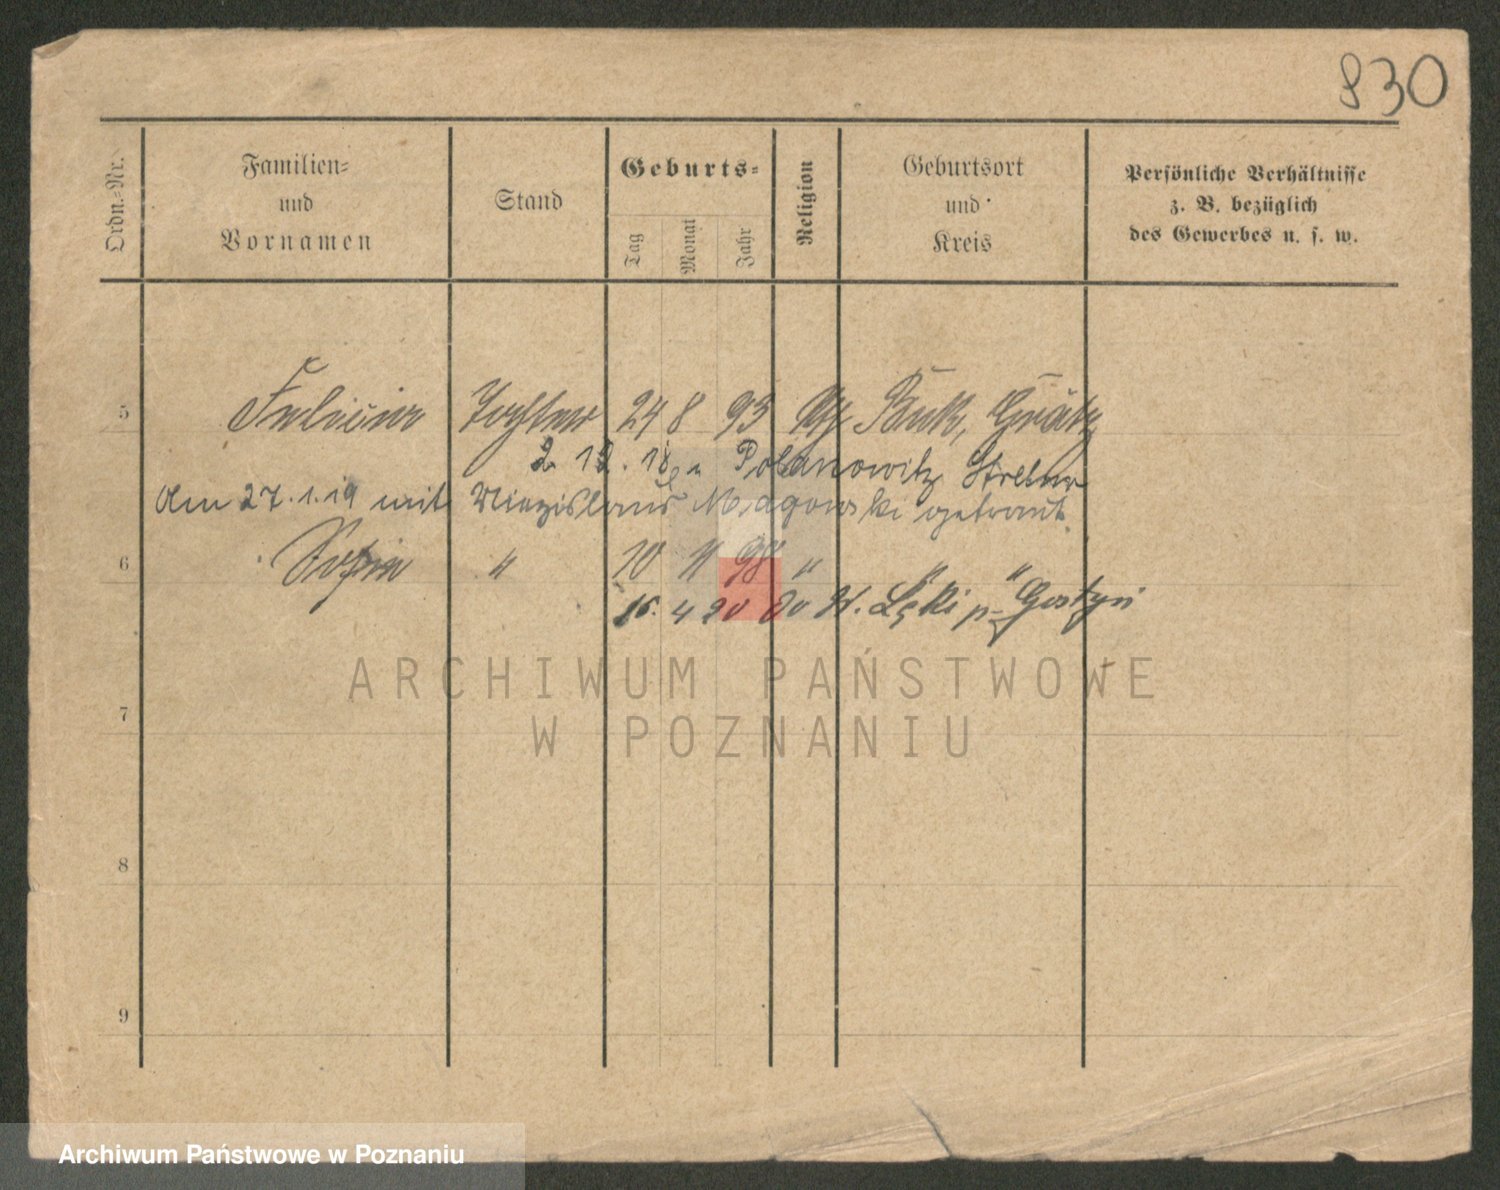 830
Ordn.-Nr.
Familien-
und
Vornamen
Stand
Geburts-
Tag
Monat
Jahr
Religion
Geburtsort
und
Kreis
Persönliche Verhältnisse
z. B. bezüglich
des Gewerbes u. s. w.
5 Felicia Tochter 24 8 93 Buk, Grätz
2. 12. 18 n Polanowitz Strelno
Am 27.1.19 mit Miezislaus getraut
6 Sofia " 10 11 98 " " "
15. 4 20 Łęki p. Gostyń
7
8
9
ARCHIWUM PAŃSTWOWE
W POZNANIU
Archiwum Państwowe w Poznaniu